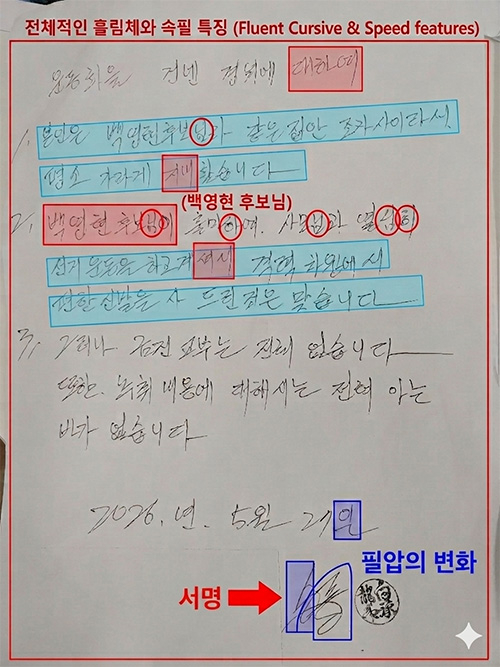 전체적인 흘림체와 속필 특징 (Fluent Cursive & Speed features)
운동화를 건넨 경위에 대하여
1. 본인은 백영현후보님과 같은 집안 조카사이라서
평소 가깝게 지내왔습니다
(백영현 후보님)
2. 백영현 후보님이 출마하여. 사모님과 열심히
선거 운동을 하고 계셔서 격려 차원에서
편한 신발을 사 드린 것은 맞습니다
3. 그러나 금전 교부는 전혀 없습니다
또한. 녹취 내용에 대해서는 전혀 아는
바가 없습니다
2026. 년. 5월 29일
필압의 변화
서명